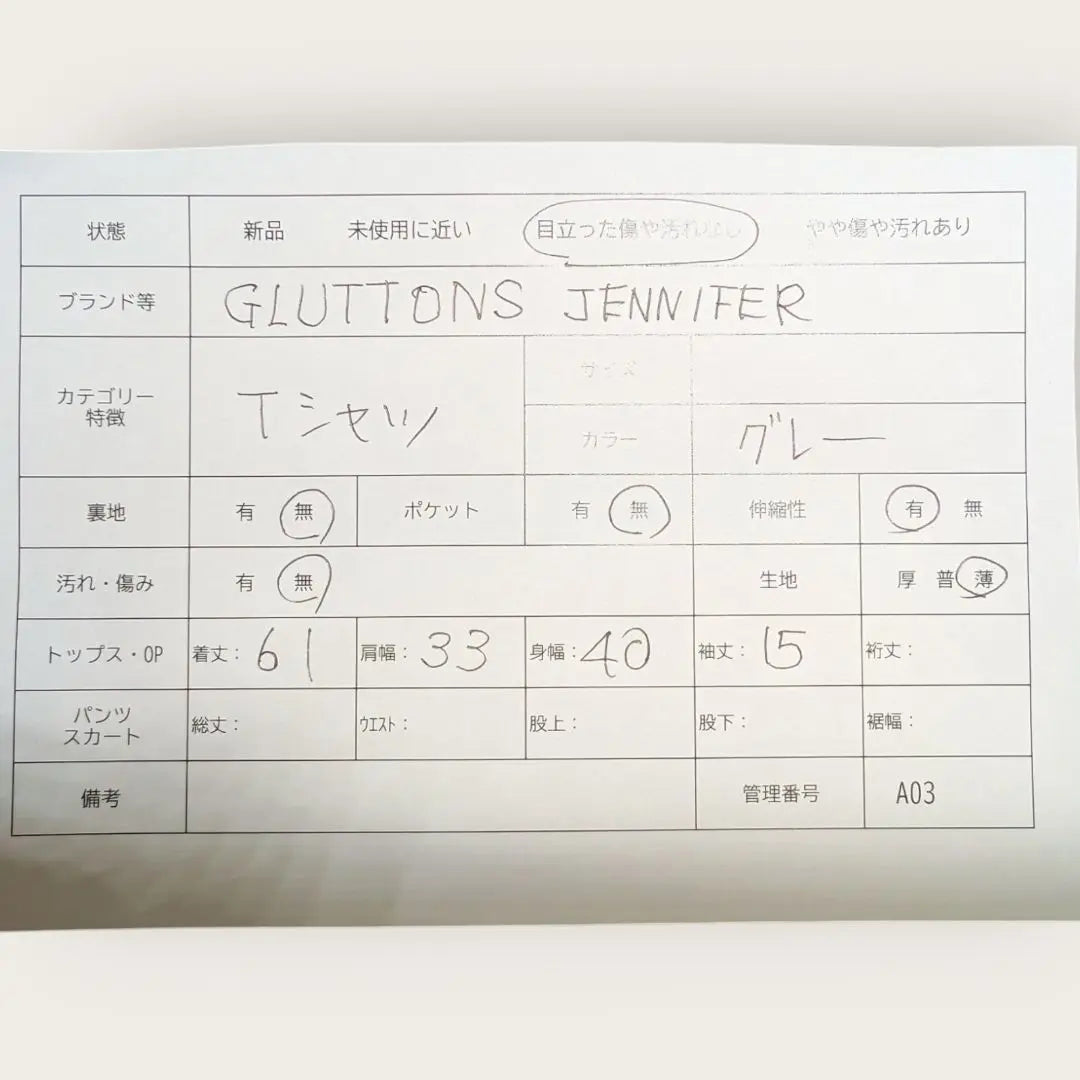 状態 新品 未使用に近い 目立った傷や汚れなし やや傷や汚れあり
ブランド等 GLUTTONS JENNIFER
カテゴリー
特徴 Tシャツ サイズ
カラー グレー
裏地 有 無 ポケット 有 無 伸縮性 有 無
汚れ・傷み 有 無 生地 厚 普 薄
トップス・OP 着丈: 61 肩幅: 33 身幅: 40 袖丈: 15 裄丈:
パンツ
スカート 総丈: ウエスト: 股上: 股下: 裾幅:
備考 管理番号 A03